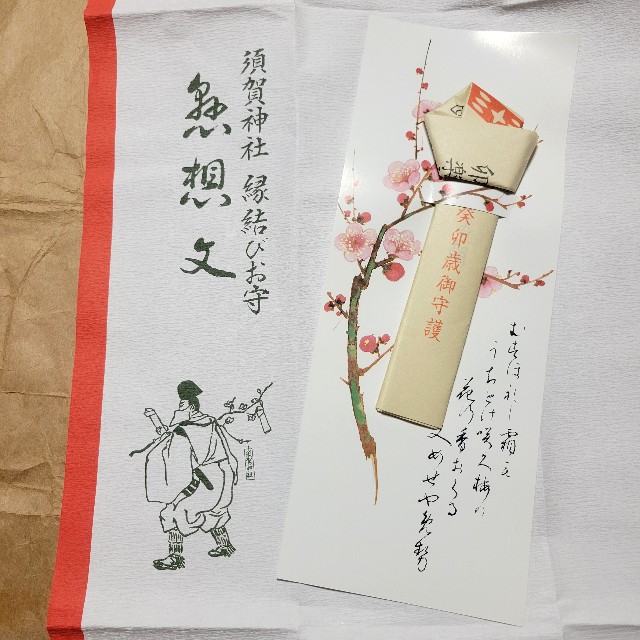 須賀神社 縁結びお守
懸想文
卯
癸卯歳御守護
むすはれし霜も
うちとけ咲久梅の
花の香おくる
文めせや